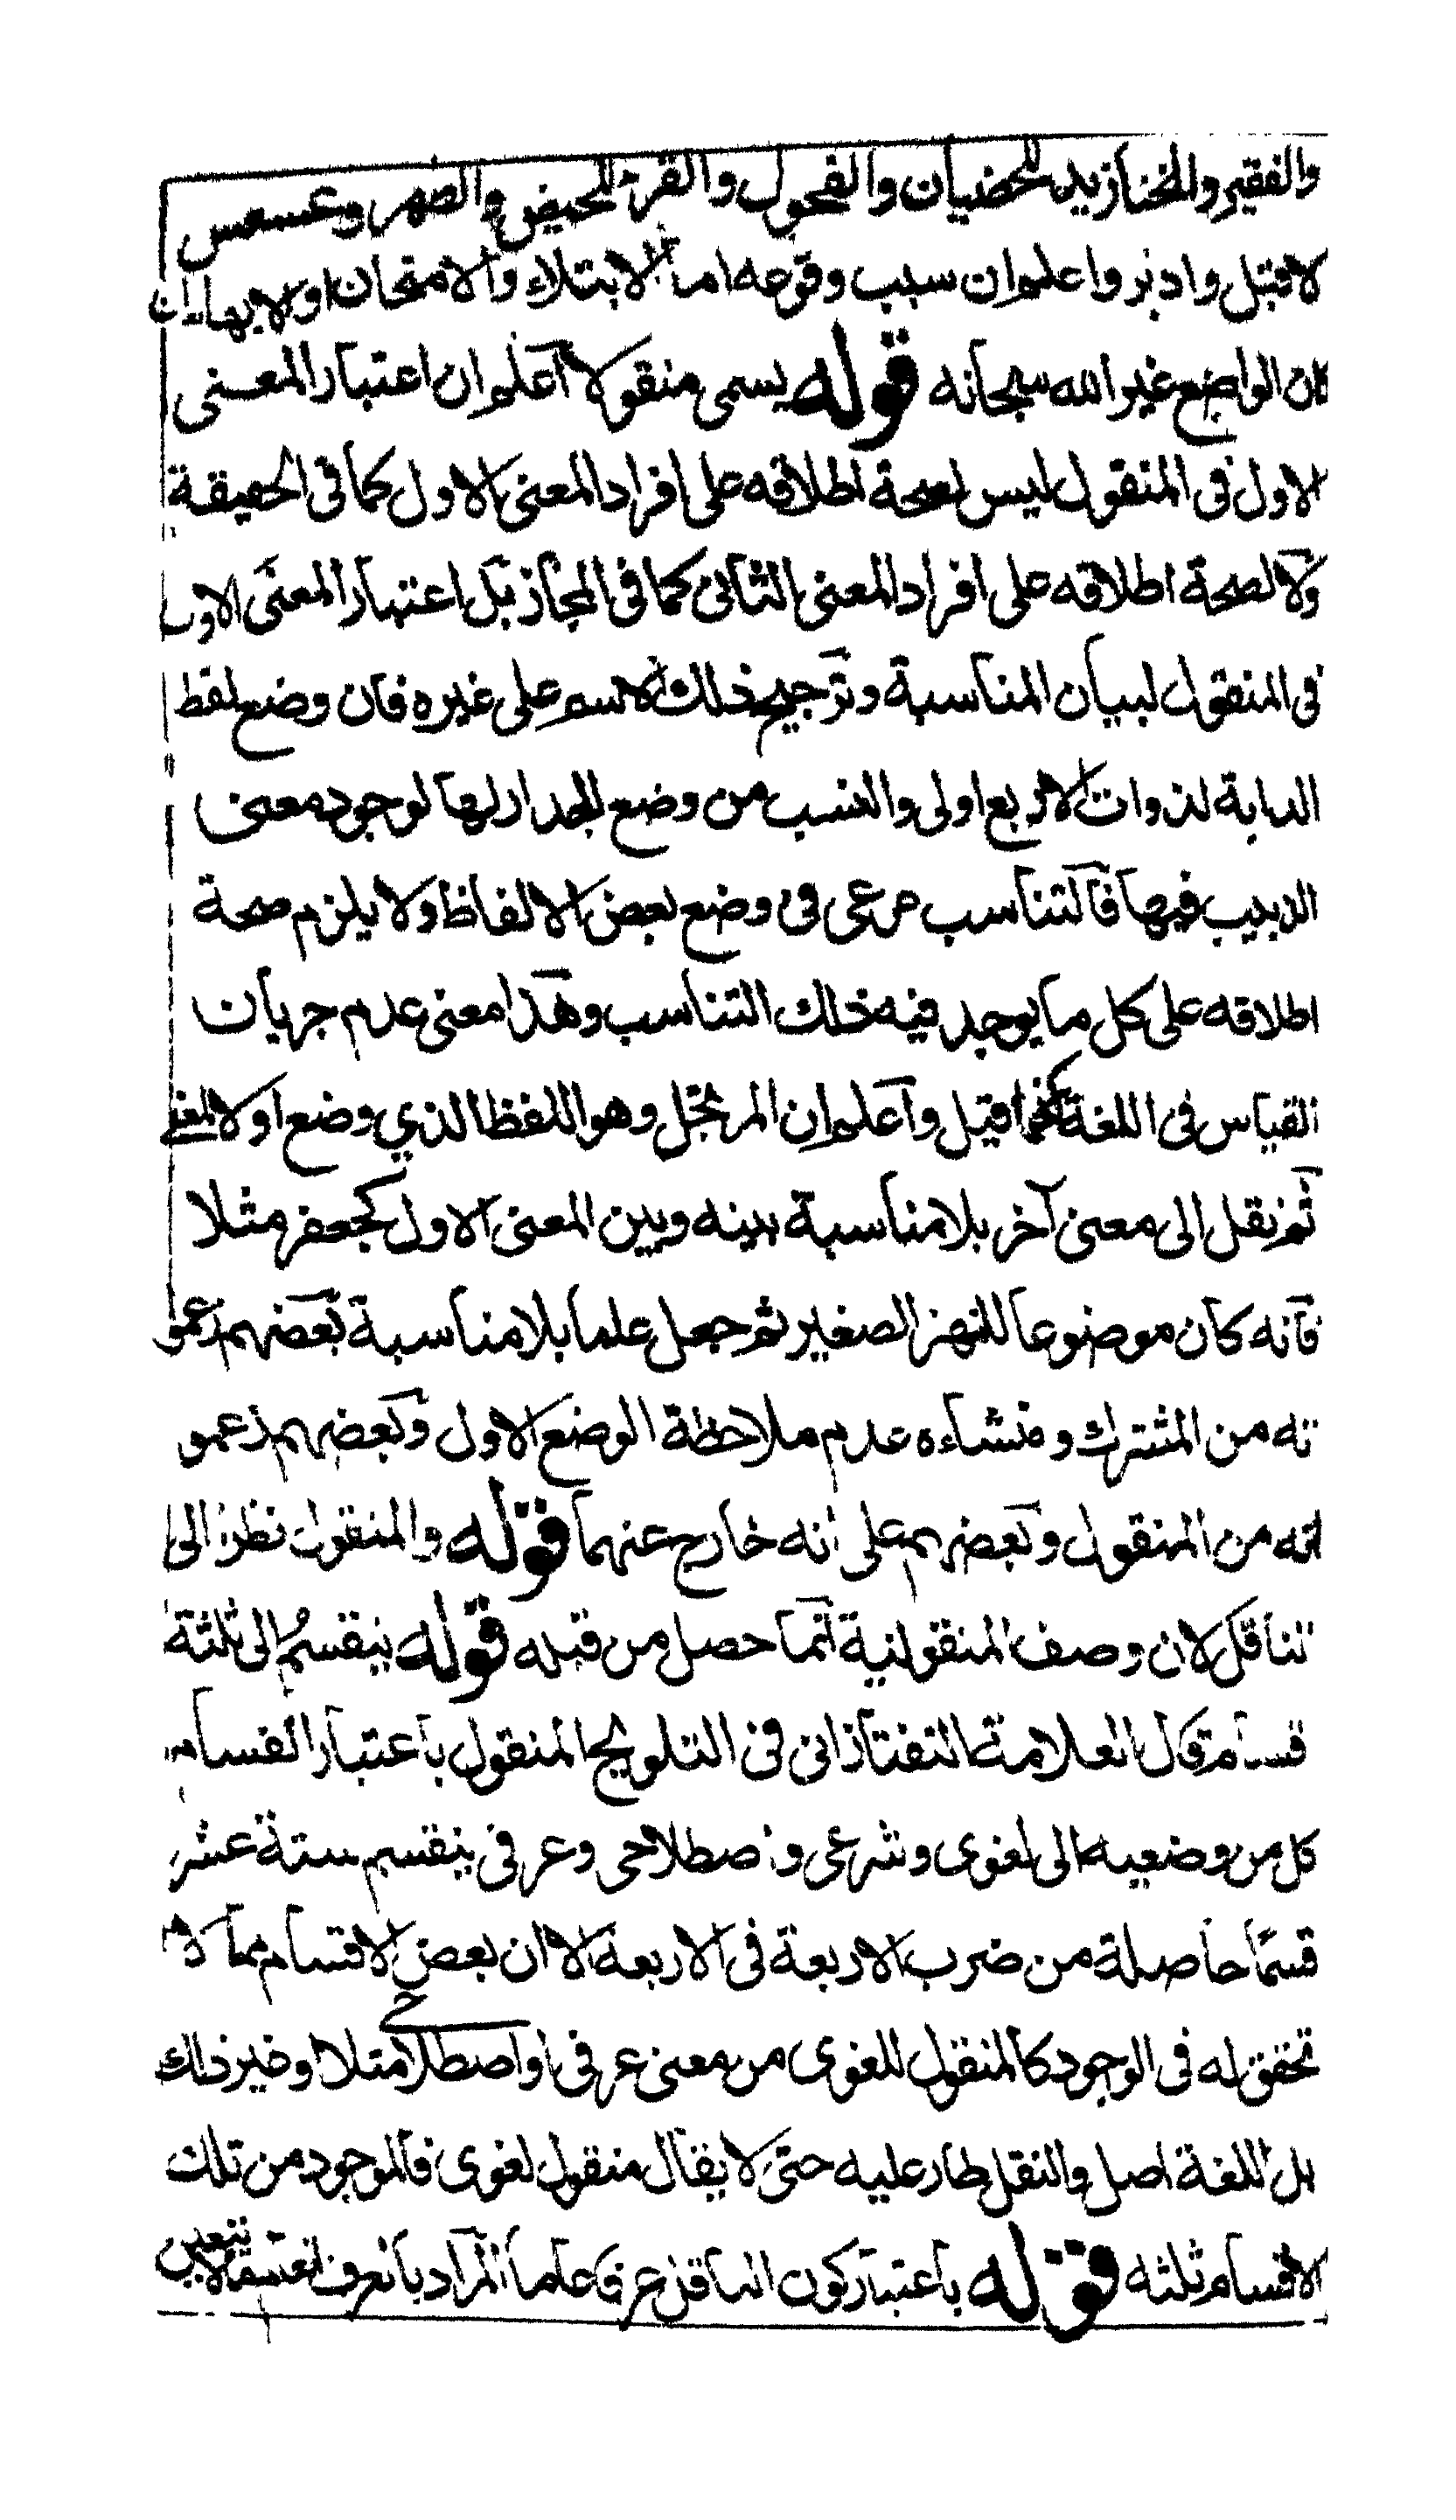 والفقير والخنازيد للخصيان والفحول والقرء للحيض والطهر وعسعس
لاقبل وادبر واعلم ان سبب وقوعه اما الابتلاء والامتحان اولابهام ان
كان الواضع غير الله سبحانه قوله يسمى منقولا اعلم ان اعتبار المعنى
الاول في المنقول ليس لصحة اطلاقه على افراد المعنى الاول كما في الحقيقة
ولا لصحة اطلاقه على افراد المعنى الثاني كما في المجاز بل اعتبار المعنى الاول
في المنقول لبيان المناسبة وترجيح ذلك الاسم على غيره فان وضع لفظ
الدابة لذوات الاربع اولى وانسب من وضع الجدار لها لوجود معنى
الدبيب فيها فالتناسب مرعى في وضع بعض الالفاظ ولا يلزم صحة
اطلاقه على كل ما يوجد فيه ذلك التناسب وهذا معنى عدم جريان
القياس في اللغة كما قيل واعلم ان المرتجل وهو اللفظ الذي وضع اولا لمعنى
ثم نقل الى معنى آخر بلا مناسبة بينه وبين المعنى الاول كجعفر مثلا
فانه كان موضوعا للنهر الصغير ثم جعل علما بلا مناسبة بعضهم زعمو
نه من المشترك ومنشاءه عدم ملاحظة الوضع الاول وبعضهم زعمو
انه من المنقول وبعضهم على انه خارج عنهما قوله والمنقول نظرا الى
لناقل لان وصف المنقولية انما حصل من قبله قوله ينقسم الى ثلثة
قسام قال العلامة التفتازاني في التلويح المنقول باعتبار انقسام
كل من وضعيه الى لغوى وشرعى واصطلاحى وعرفى ينقسم ستة عشر
قسما حاصلة من ضرب الاربعة في الاربعة الا ان بعض الاقسام مما لا
تحقق له في الوجود كالمنقول اللغوى من معنى عرفى او اصطلاحى مثلا وغير ذلك
بل اللغة اصل والنقل طار عليه حتى لا يقال منقول لغوى فالموجود من تلك
الاقسام ثلثه قوله باعتبار كون الناقل عرفا عاما المراد بالعرف العام مالا يتعين